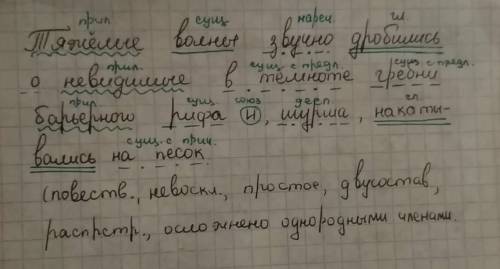 прил. сущ. нареч. гл.
Тяжёлые волны звучно дробились
прил. сущ. с предл. сущ. с предл.
о невидимые в темноте гребни
прил. сущ. союз деепр. гл.
барьерного рифа и, шурша, накаты-
сущ. с
вались на песок.
(повеств., невоскл., простое, двусостав,
распрстр., осложнено однородными членами.